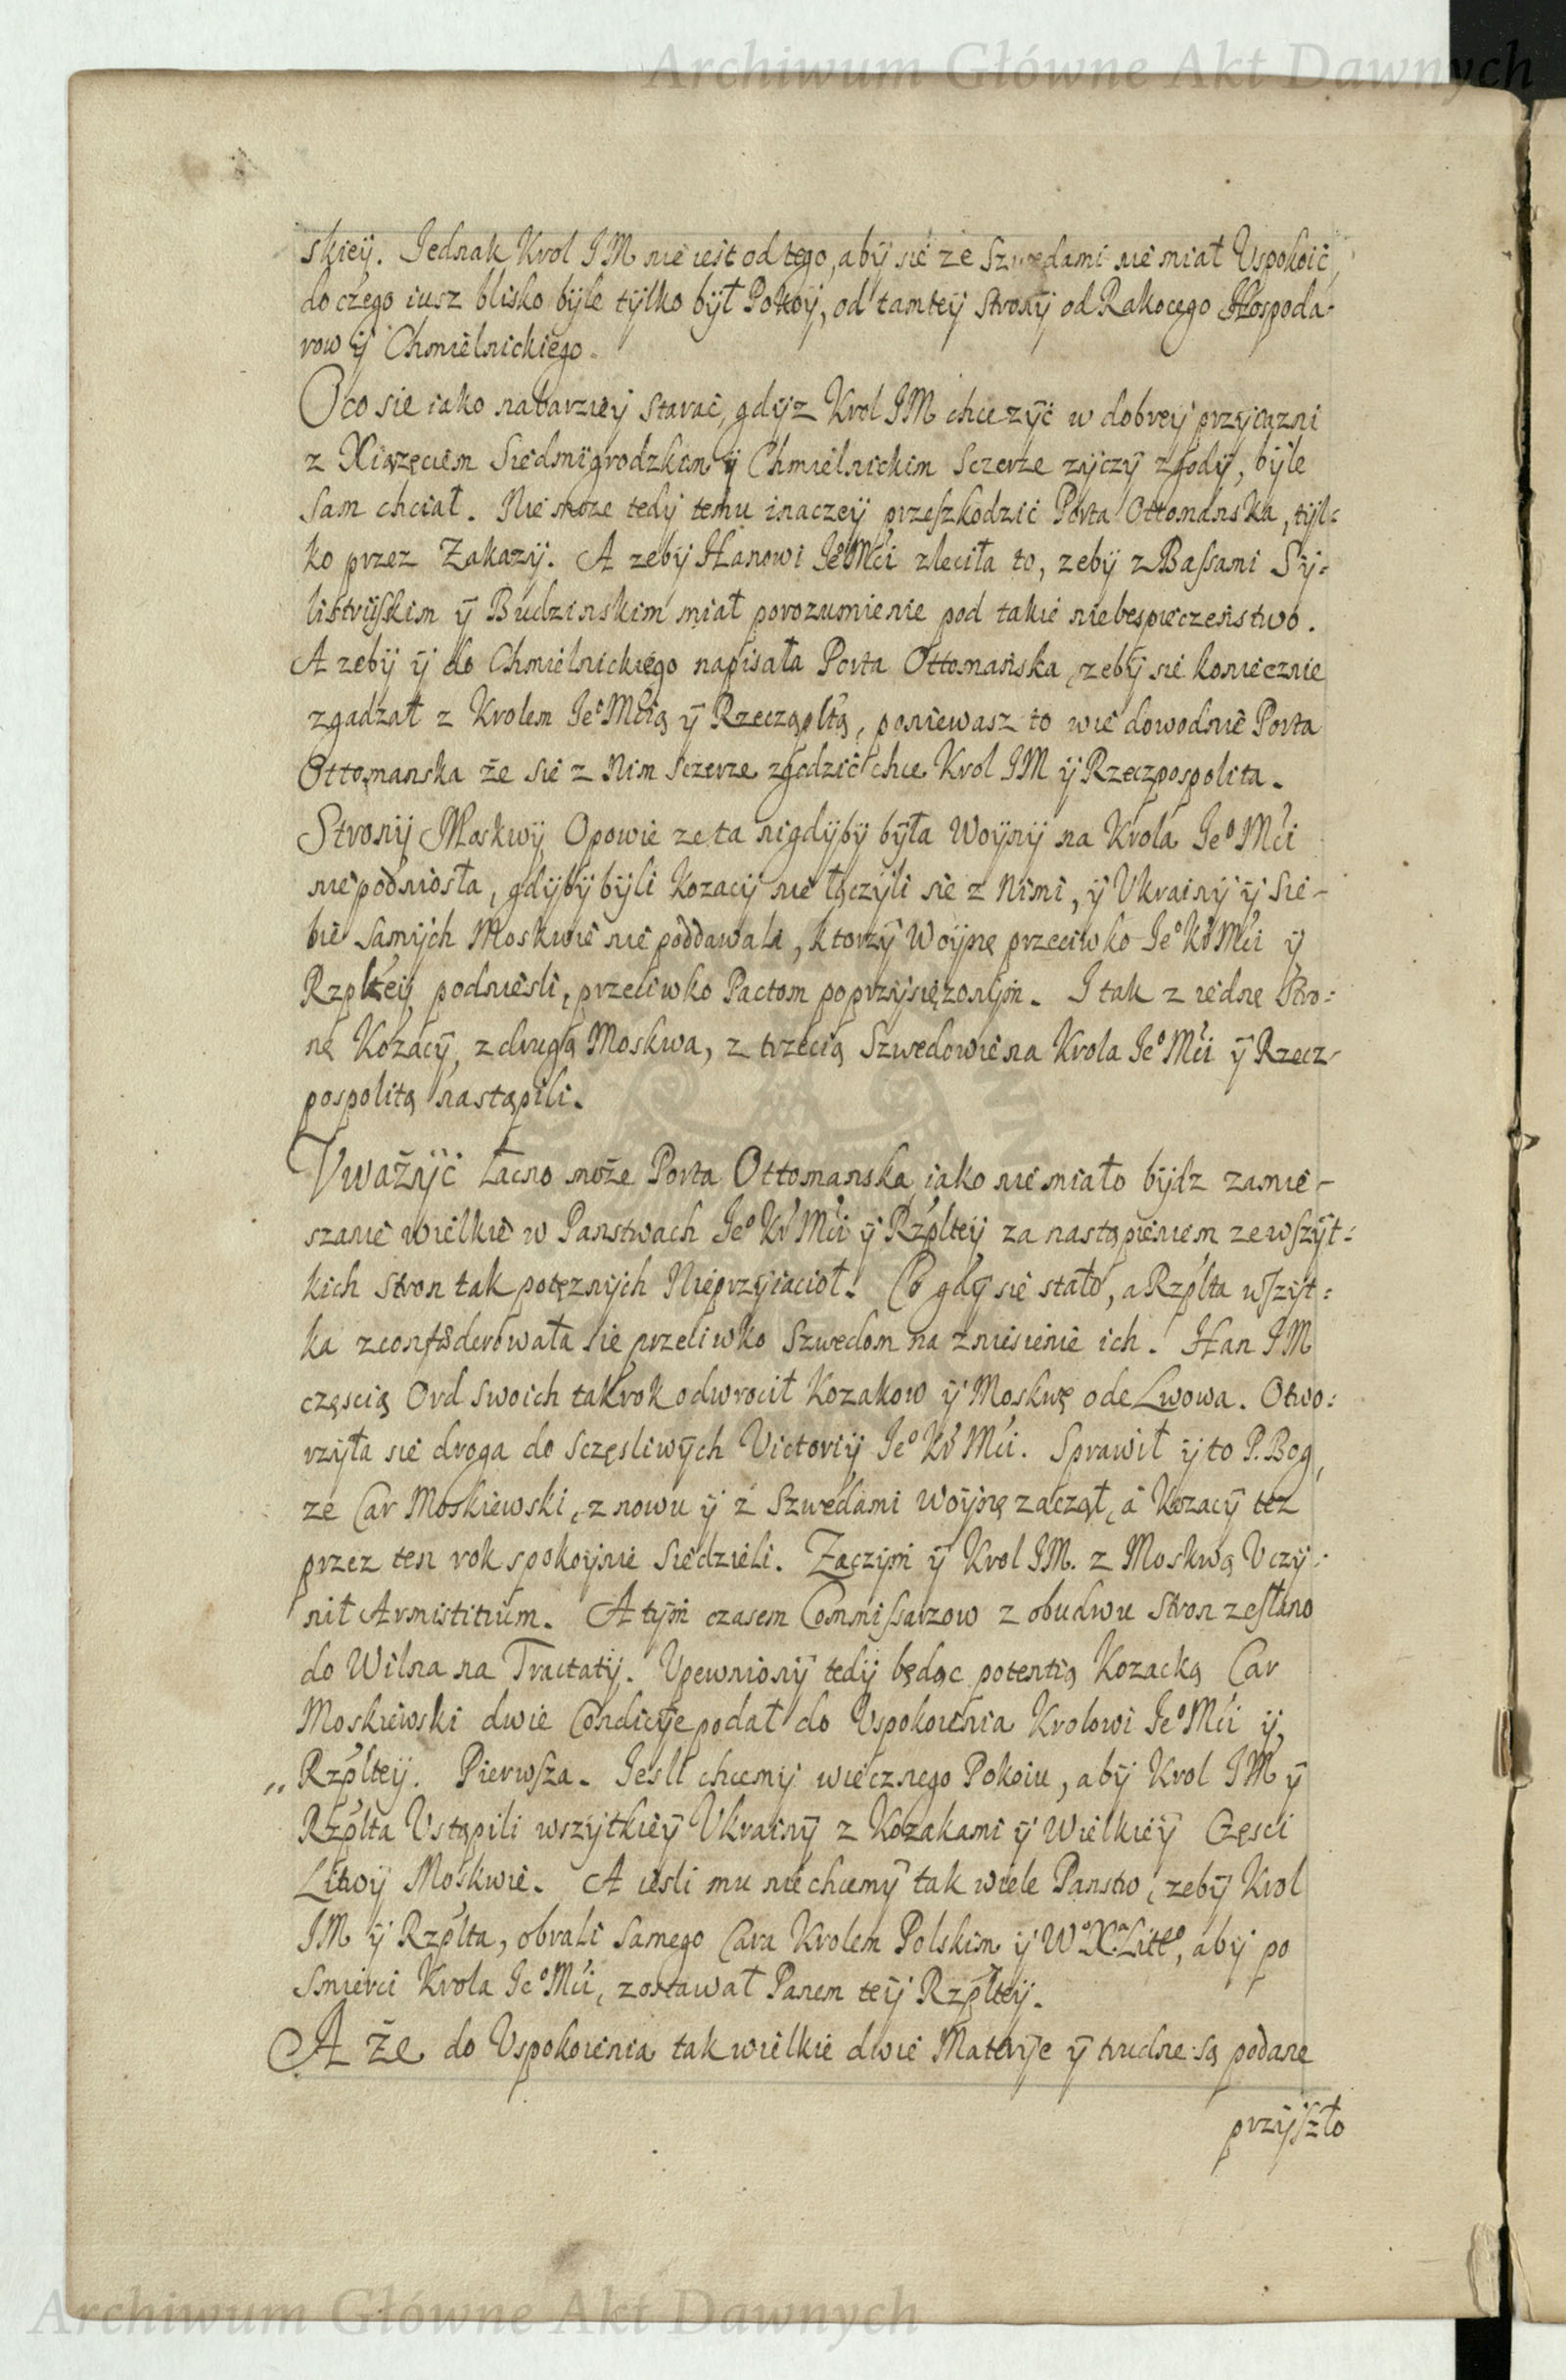 Archiwum Główne Akt Dawnych
skieÿ. Jednak Krol JM nie iest od tego, abÿ sie ze Szwedami nie miał Uspokoić,
do czego iusz blisko bÿle tÿlko bÿł Pokoÿ, od tamteÿ stronÿ od Rakocego Hospoda-
row ÿ Chmielnickiego.
O co sie iako nabarzieÿ starać, gdÿz Krol JM chce zÿć w dobreÿ przÿiazni
z Xiązęciem Siedmigrodzkim ÿ Chmielnickim sczerze zÿczÿ zgodÿ, bÿle
sam chciał. Nie moze tedÿ temu inaczeÿ przeszkodzić Porta Ottomanska, tÿl=
ko przez Zakazÿ. A zebÿ Hanowi JeoMći zleciła to, zebÿ z Bassami Sÿ=
listrÿskim ÿ Budzinskim miał porozumienie pod takie niebespieczeństwo.
A zebÿ ÿ do Chmielnickiego napisała Porta Ottomańska, zebÿ sie koniecznie
zgadzał z Krolem JeoMćią ÿ Rzecząpltą, poniewasz to wie dowodnie Porta
Ottomanska że sie z Nim sczerze zgodzić chce Krol JM ÿ Rzeczpospolita.
Stronÿ Moskwÿ Opowie ze ta nigdÿbÿ bÿła Woÿnÿ na Krola JeoMći
nie podniosła, gdÿbÿ bÿli Kozacÿ nie łączÿli sie z Nimi, ÿ Ukrainÿ ÿ Sie-
bie samÿch Moskwie nie poddawali, ktorzÿ Woÿnę przeciwko JeoKrMći ÿ
Rzplteÿ podniesli, przeciwko Pactom poprzÿsięzonÿm. I tak z iednę Stro=
nę Kozacÿ, z drugą Moskwa, z trzecią Szwedowie na Krola JeoMći ÿ Rzecz-
pospolitą nastąpili.
Vważÿć łacno może Porta Ottomanska, iako nie miało bÿdz zamie-
szanie wielkie w Panstwach JeoKrMći ÿ Rzplteÿ za nastąpieniem ze wszÿt=
kich stron tak potęznÿch Nieprzÿiacioł. Co gdÿ sie stało, a Rzplta wszÿt=
ka zconfoderowała sie przeciwko Szwedom na zniesienie ich. Han JM
częscią Ord swoich tak rok odwrocił Kozakow ÿ Moskwę ode Lwowa. Otwo=
rzÿła sie droga do sczęsliwÿch Victoriÿ JeoKrMći. Sprawił ÿ to P. Bog,
ze Car Moskiewski, znowu ÿ z Szwedami woÿnę zaczął, a Kozacÿ tez
przez ten rok spokoÿnie siedzieli. Zaczÿm ÿ Krol JM. z Moskwą Uczÿ-
nił Armistitium. A tÿm czasem Commissarzow z obudwu stron zesłano
do Wilna na Tractatÿ. Upewnionÿ tedÿ będąc potentią Kozacką Car
Moskiewski dwie Condicÿe podał do Uspokoienia Krolowi JeoMći ÿ
„ Rzplteÿ. Pierwsza. Jesli chcemÿ wiecznego Pokoiu, abÿ Krol JM ÿ
Rzplta Ustąpili wszÿtkieÿ Ukrainÿ z Kozakami ÿ Wielkieÿ Częsci
Litwÿ Moskwie. A iesli mu nie chcemÿ tak wiele Panstw, zebÿ Krol
JM ÿ Rzplta, obrali samego Cara Krolem Polskim ÿ WoXaLitto, abÿ po
smierci Krola JeoMći, zostawał Panem teÿ Rzplteÿ.
A że do Uspokoienia tak wielkie dwie Materÿe ÿ trudne są podane
przÿszło
Archiwum Główne Akt Dawnych